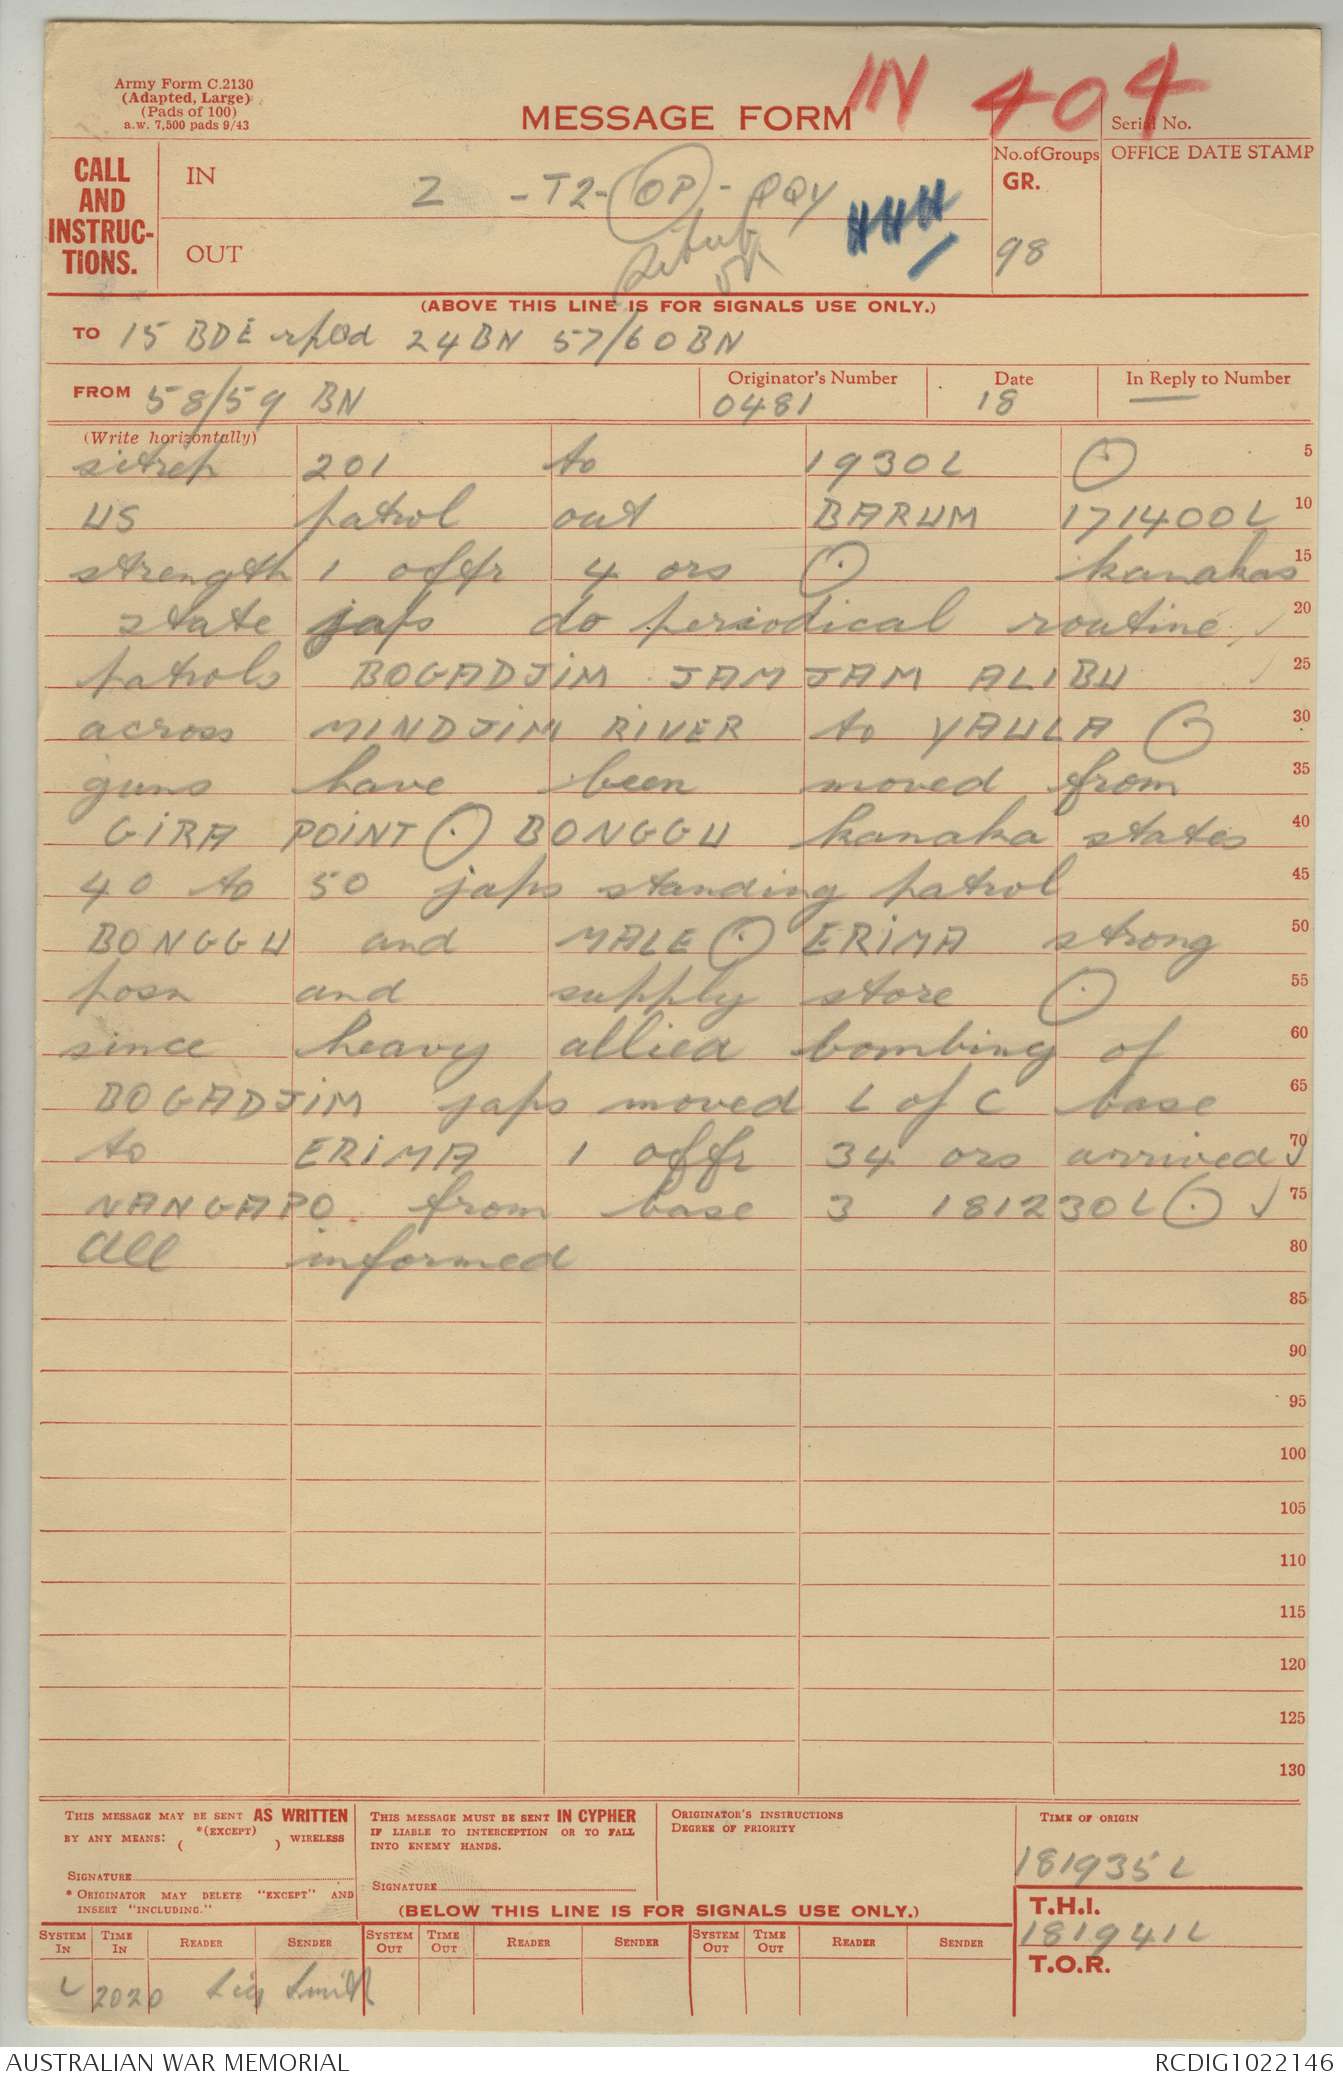 Army Form C.2130
(Adapted, Large)
(Pads of 100)
a.w. 7,500 pads 9/43
MESSAGE FORM
IN 404
Serial No.
CALL AND INSTRUCTIONS.
IN
OUT
Z - T2 - OP - QQY
HHH
No. of Groups
GR.
98
OFFICE DATE STAMP
(ABOVE THIS LINE IS FOR SIGNALS USE ONLY.)
TO 15 BDE rptd 24 BN 57/60 BN
FROM 58/59 BN
Originator's Number
0481
Date
18
In Reply to Number
(Write horizontally)
sitrep 201 to 1930L ⊙ 5
US patrol out BARUM 171400L 10
strength 1 offr 4 ors ⊙ kanakas 15
state japs do periodical routine 20
patrols BOGADJIM JAM JAM ALIBU 25
across MINDJIM RIVER to YAULA ⊙ 30
guns have been moved from 35
GIRA POINT ⊙ BONGGU kanaka states 40
40 to 50 japs standing patrol 45
BONGGU and MALE ⊙ ERIMA strong 50
posn and supply store ⊙ 55
since heavy allied bombing of 60
BOGADJIM japs moved L of C base 65
to ERIMA 1 offr 34 ors arrived 70
NANGAPO from base 3 181230L ⊙ 75
All informed 80
85
90
95
100
105
110
115
120
125
130
THIS MESSAGE MAY BE SENT AS WRITTEN
BY ANY MEANS: *(EXCEPT) ( ) WIRELESS
SIGNATURE
* ORIGINATOR MAY DELETE "EXCEPT" AND
INSERT "INCLUDING."
THIS MESSAGE MUST BE SENT IN CYPHER
IF LIABLE TO INTERCEPTION OR TO FALL
INTO ENEMY HANDS.
SIGNATURE
ORIGINATOR'S INSTRUCTIONS
DEGREE OF PRIORITY
TIME OF ORIGIN
181935L
(BELOW THIS LINE IS FOR SIGNALS USE ONLY.)
T.H.I.
181941L
T.O.R.
SYSTEM IN TIME IN READER SENDER SYSTEM OUT TIME OUT READER SENDER SYSTEM OUT TIME OUT READER SENDER
L 2020 Sig Smith
AUSTRALIAN WAR MEMORIAL
RCDIG1022146